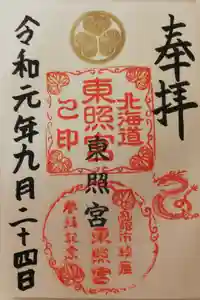 奉拝
北海道
東照宮
之印
東照宮
東照宮
参拝記念
令和元年九月二十四日